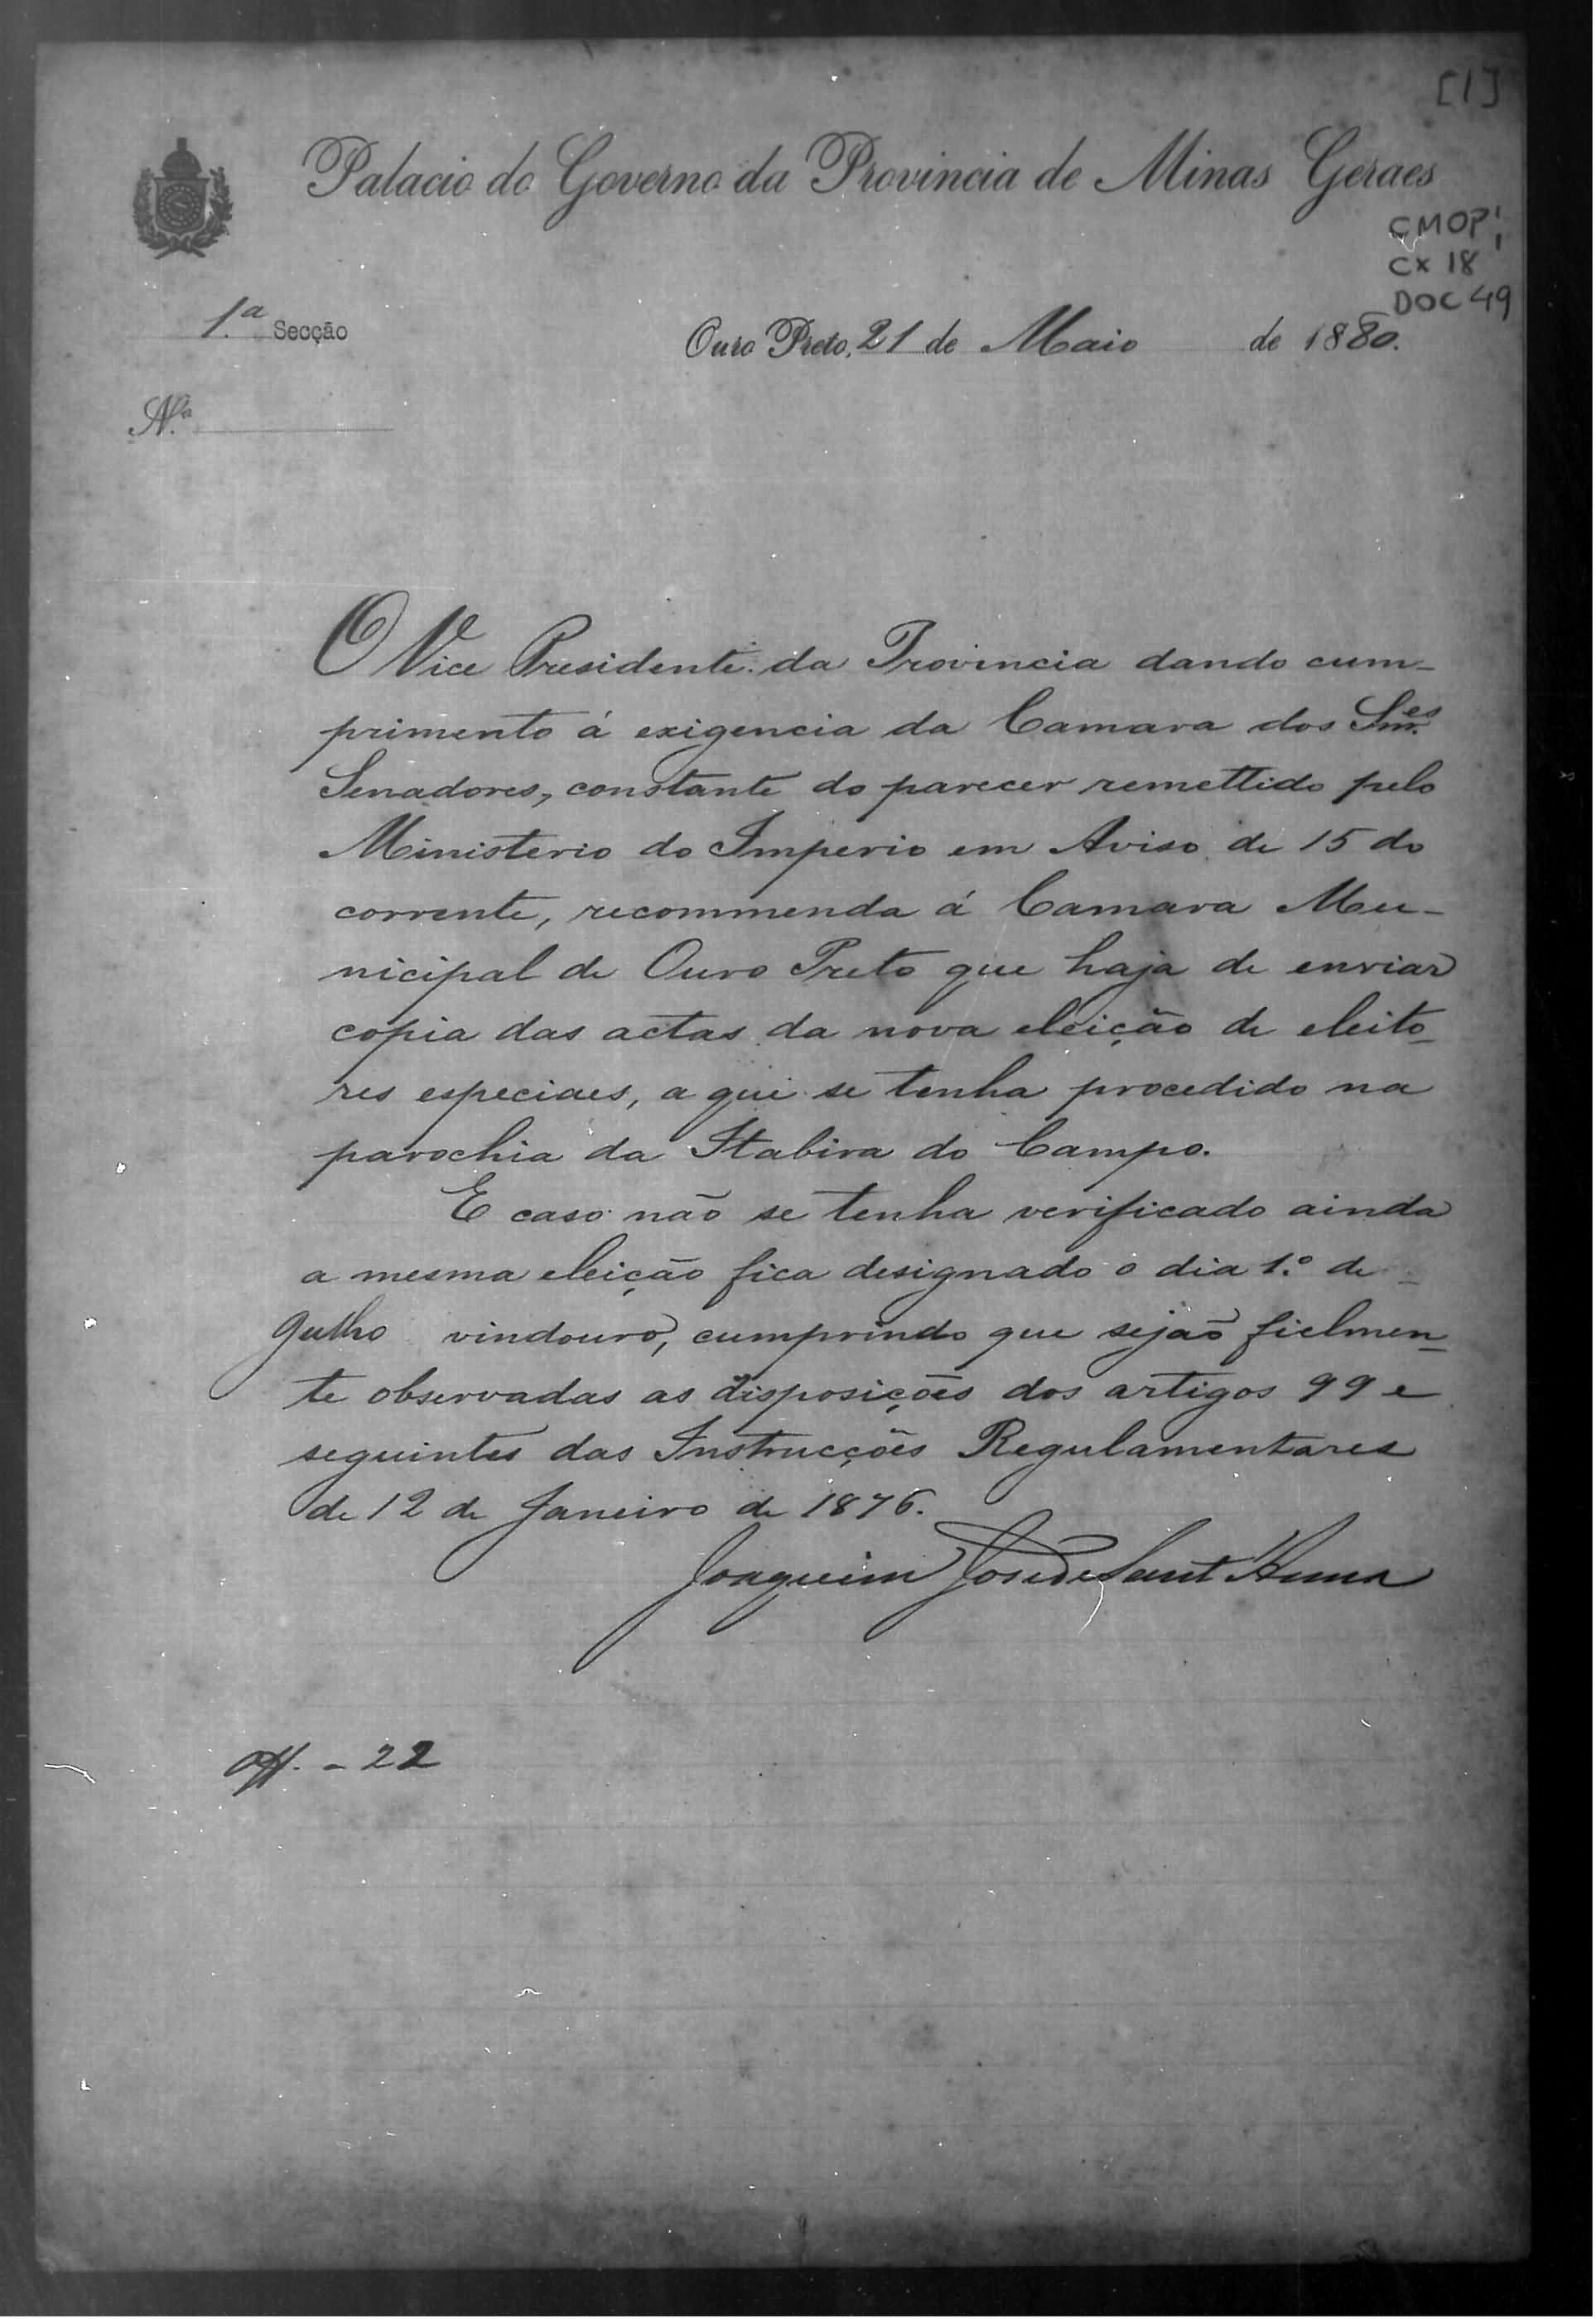 [1]
Palacio do Governo da Provincia de Minas Geraes
CMOP
CX 18
DOC 49
1.ª Secção
Ouro Preto, 21 de Maio de 1880.
N.º
O Vice Presidente da Provincia dando cum-
primento á exigencia da Camara dos Snr.es
Senadores, constante do parecer remettido pelo
Ministerio do Imperio em Aviso de 15 do
corrente, recommenda á Camara Mu-
nicipal de Ouro Preto que haja de enviar
copia das actas da nova eleição de eleito-
res especiaes, a que se tenha procedido na
parochia da Itabira do Campo.
E caso não se tenha verificado ainda
a mesma eleição fica designado o dia 1.º de
Julho vindouro, cumprindo que sejão fielmen-
te observadas as disposições dos artigos 99 e
seguintes das Instrucções Regulamentares
de 12 de Janeiro de 1876.
Joaquim José de Sant'Anna
Off. - 22